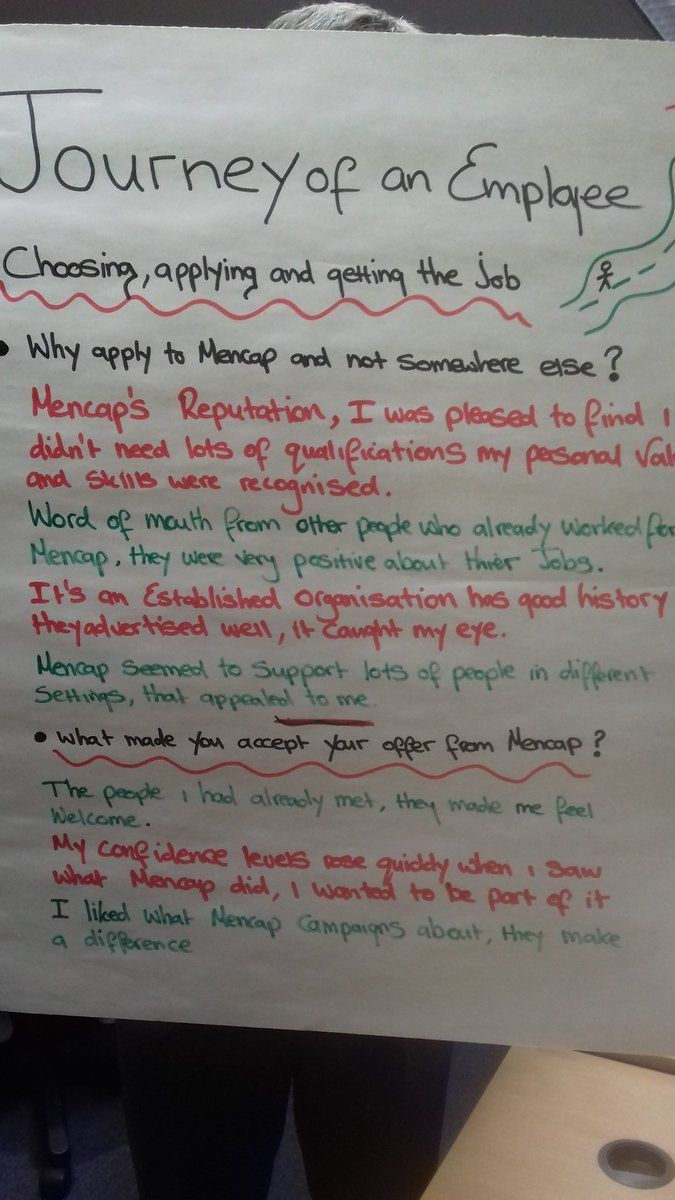 Journey of an Employee
Choosing, applying and getting the job
• Why apply to Mencap and not somewhere else?
Mencap's Reputation, I was pleased to find I
didn't need lots of qualifications my personal Val
and skills were recognised.
Word of mouth from other people who already worked for
Mencap, they were very positive about thier Jobs.
It's an Established organisation has good history
they advertised well, it caught my eye.
Mencap seemed to support lots of people in different
settings, that appealed to me.
• What made you accept your offer from Mencap?
The people I had already met, they made me feel
welcome.
My confidence levels rose quickly when I saw
what Mencap did, I wanted to be part of it
I liked what Mencap Campaigns about, they make
a difference